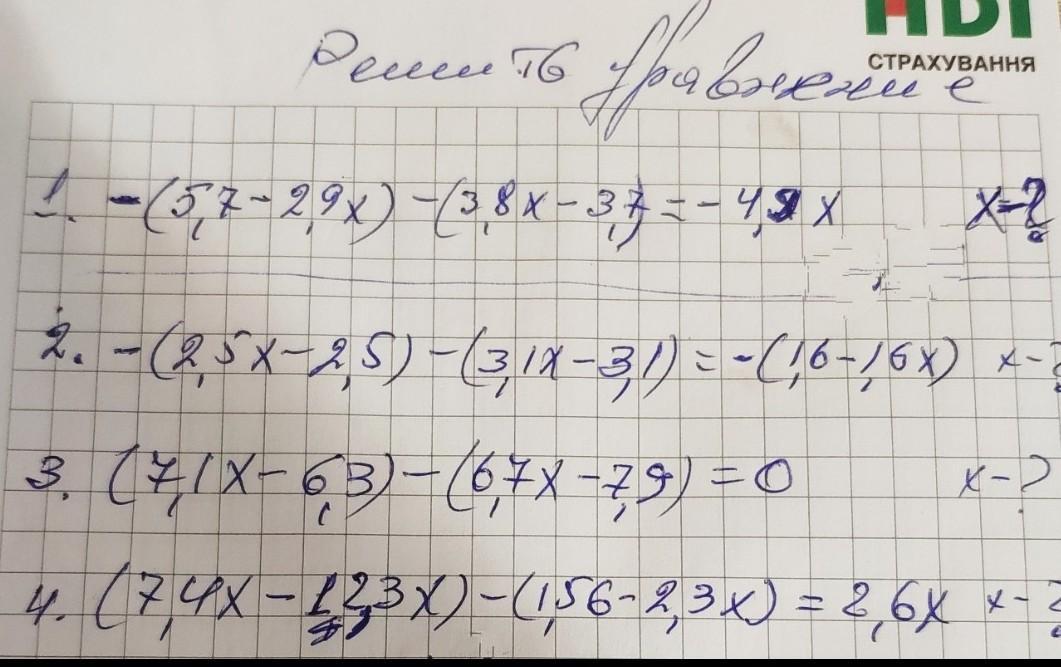 СТРАХУВАННЯ
Решить Уравнение
1. -(5,7-2,9x)-(3,8x-3,7)=-4,9x x-?
2. -(2,5x-2,5)-(3,1x-3,1)=-(1,6-1,6x) x-?
3. (7,1x-6,3)-(6,7x-7,9)=0 x-?
4. (7,4x-12,3x)-(1,56-2,3x)=2,6x x-?